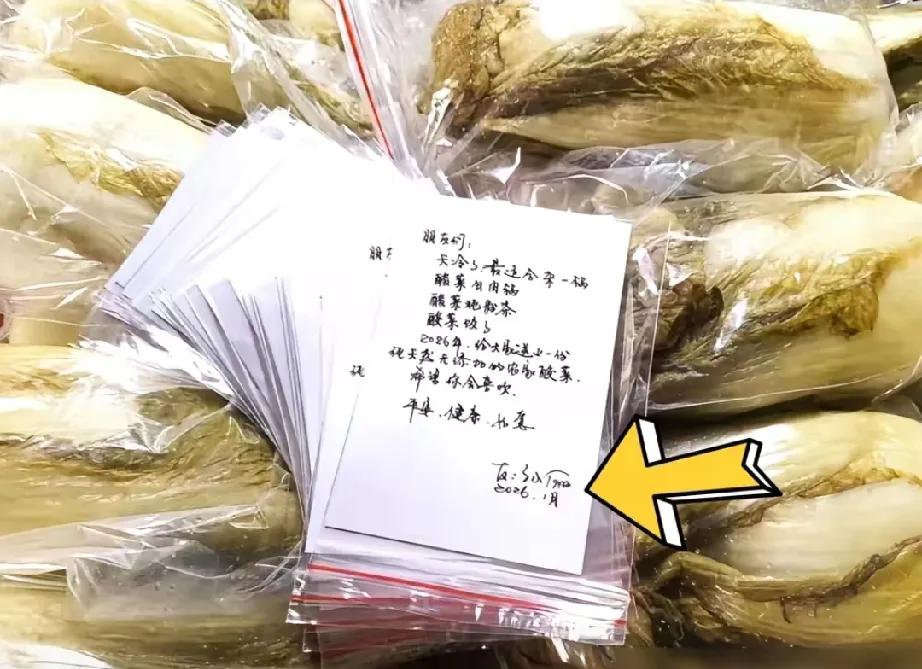 朋友们：
天冷了最适合来一锅
酸菜白肉锅
酸菜炖粉条
酸菜饺子
2026年，给大家送上一份
纯天然无添加的农家酸菜，
希望你会喜欢。
平安、健康、如意
友：
2026.1月
朋友
纯